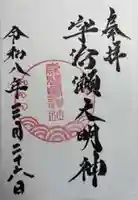 奉拝
宇治瀬大明神
令和八年二月二十八日